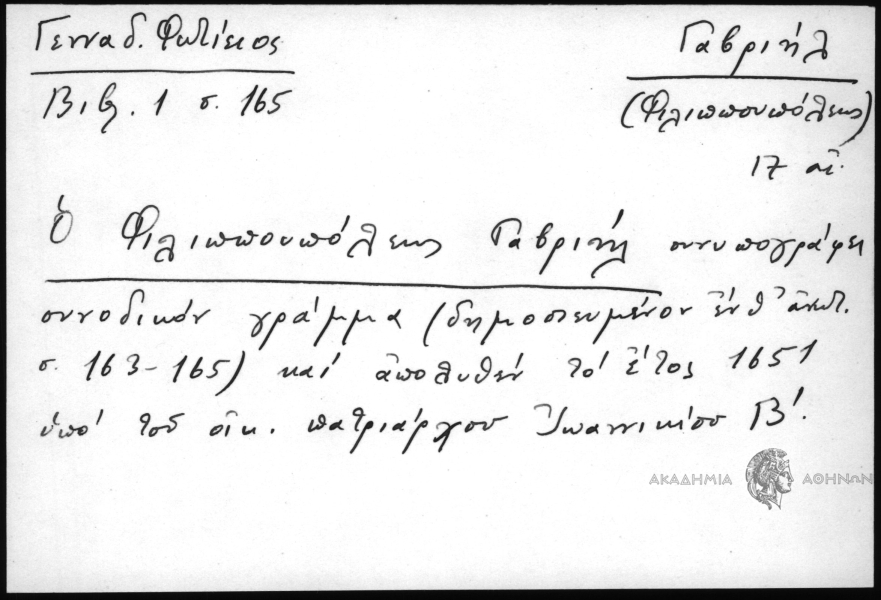 Γενναδ. Φωτίειος
Βιβλ. 1 σ. 165
Γαβριήλ
(Φιλιππουπόλεως)
17 αἰ.
Ὁ Φιλιππουπόλεως Γαβριήλ συνυπογράφει
συνοδικόν γράμμα (δημοσιευμένον ἔνθ' ἀνωτ.
σ. 163-165) καί ἀπολυθέν τό ἔτος 1651
ὑπό τοῦ οἰκ. πατριάρχου Ἰωαννικίου Β'.
ΑΚΑΔΗΜΙΑ ΑΘΗΝΩΝ